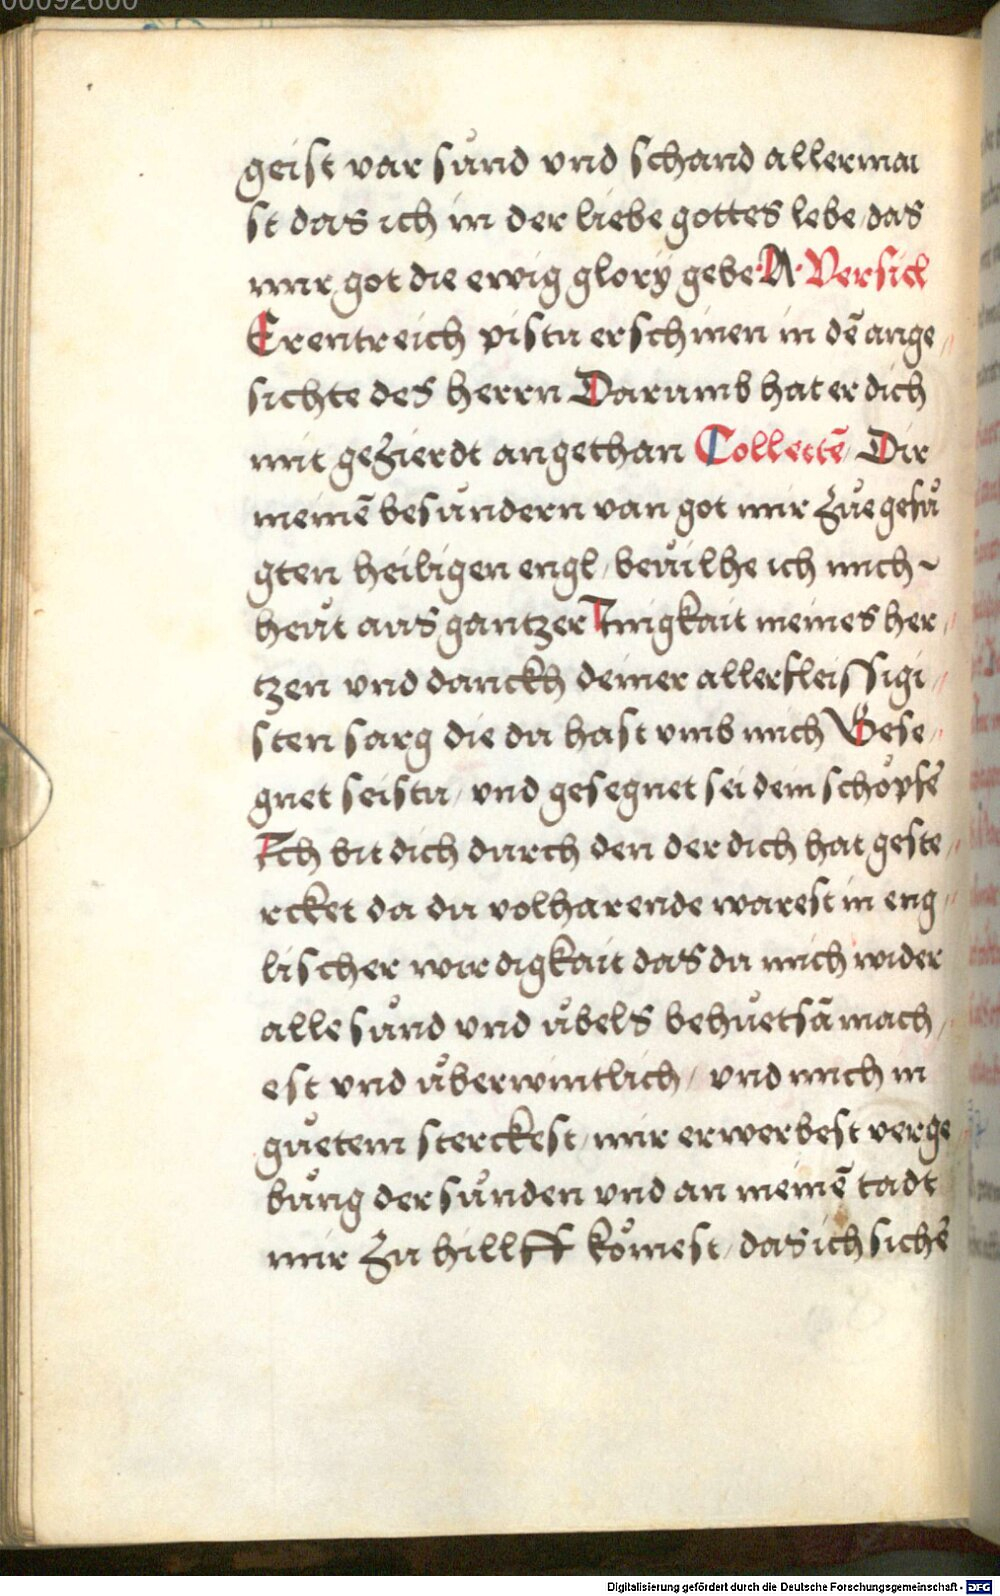 00092600
geist var sünd vnd schand allermai
st das ich in der liebe gottes lebe / das
mir got die ewig glory gebe · A · Versicl
Erentreich pistu erschinen in dē ange⸗
sichte des herrn Darumb hat er dich
mit gezierdt angethan Collectē / Dir
meinē besundern van got mir zůe gefů
gten heiligen engl / bevilhe ich mich ~
heut aus gantzer Inigkait meines her⸗
tzen vnd danckh deiner allerfleissigi⸗
sten sarg die du hast vmb mich Gese⸗
gnet seistu / vnd gesegnet sei dein schöpfē
Ich bit dich durch den der dich hat geste⸗
rcket da du volharende warest in eng⸗
lischer wirdigkait das du mich wider
alle sünd vnd übels behüetsā mach⸗
est vnd überwintlich / vnd mich in
gůetem sterckest / mir erwerbest verge
bung der sünden vnd an meinē tadt
mir zu hillff kömest / das ich sichē
Digitalisierung gefördert durch die Deutsche Forschungsgemeinschaft - DFG